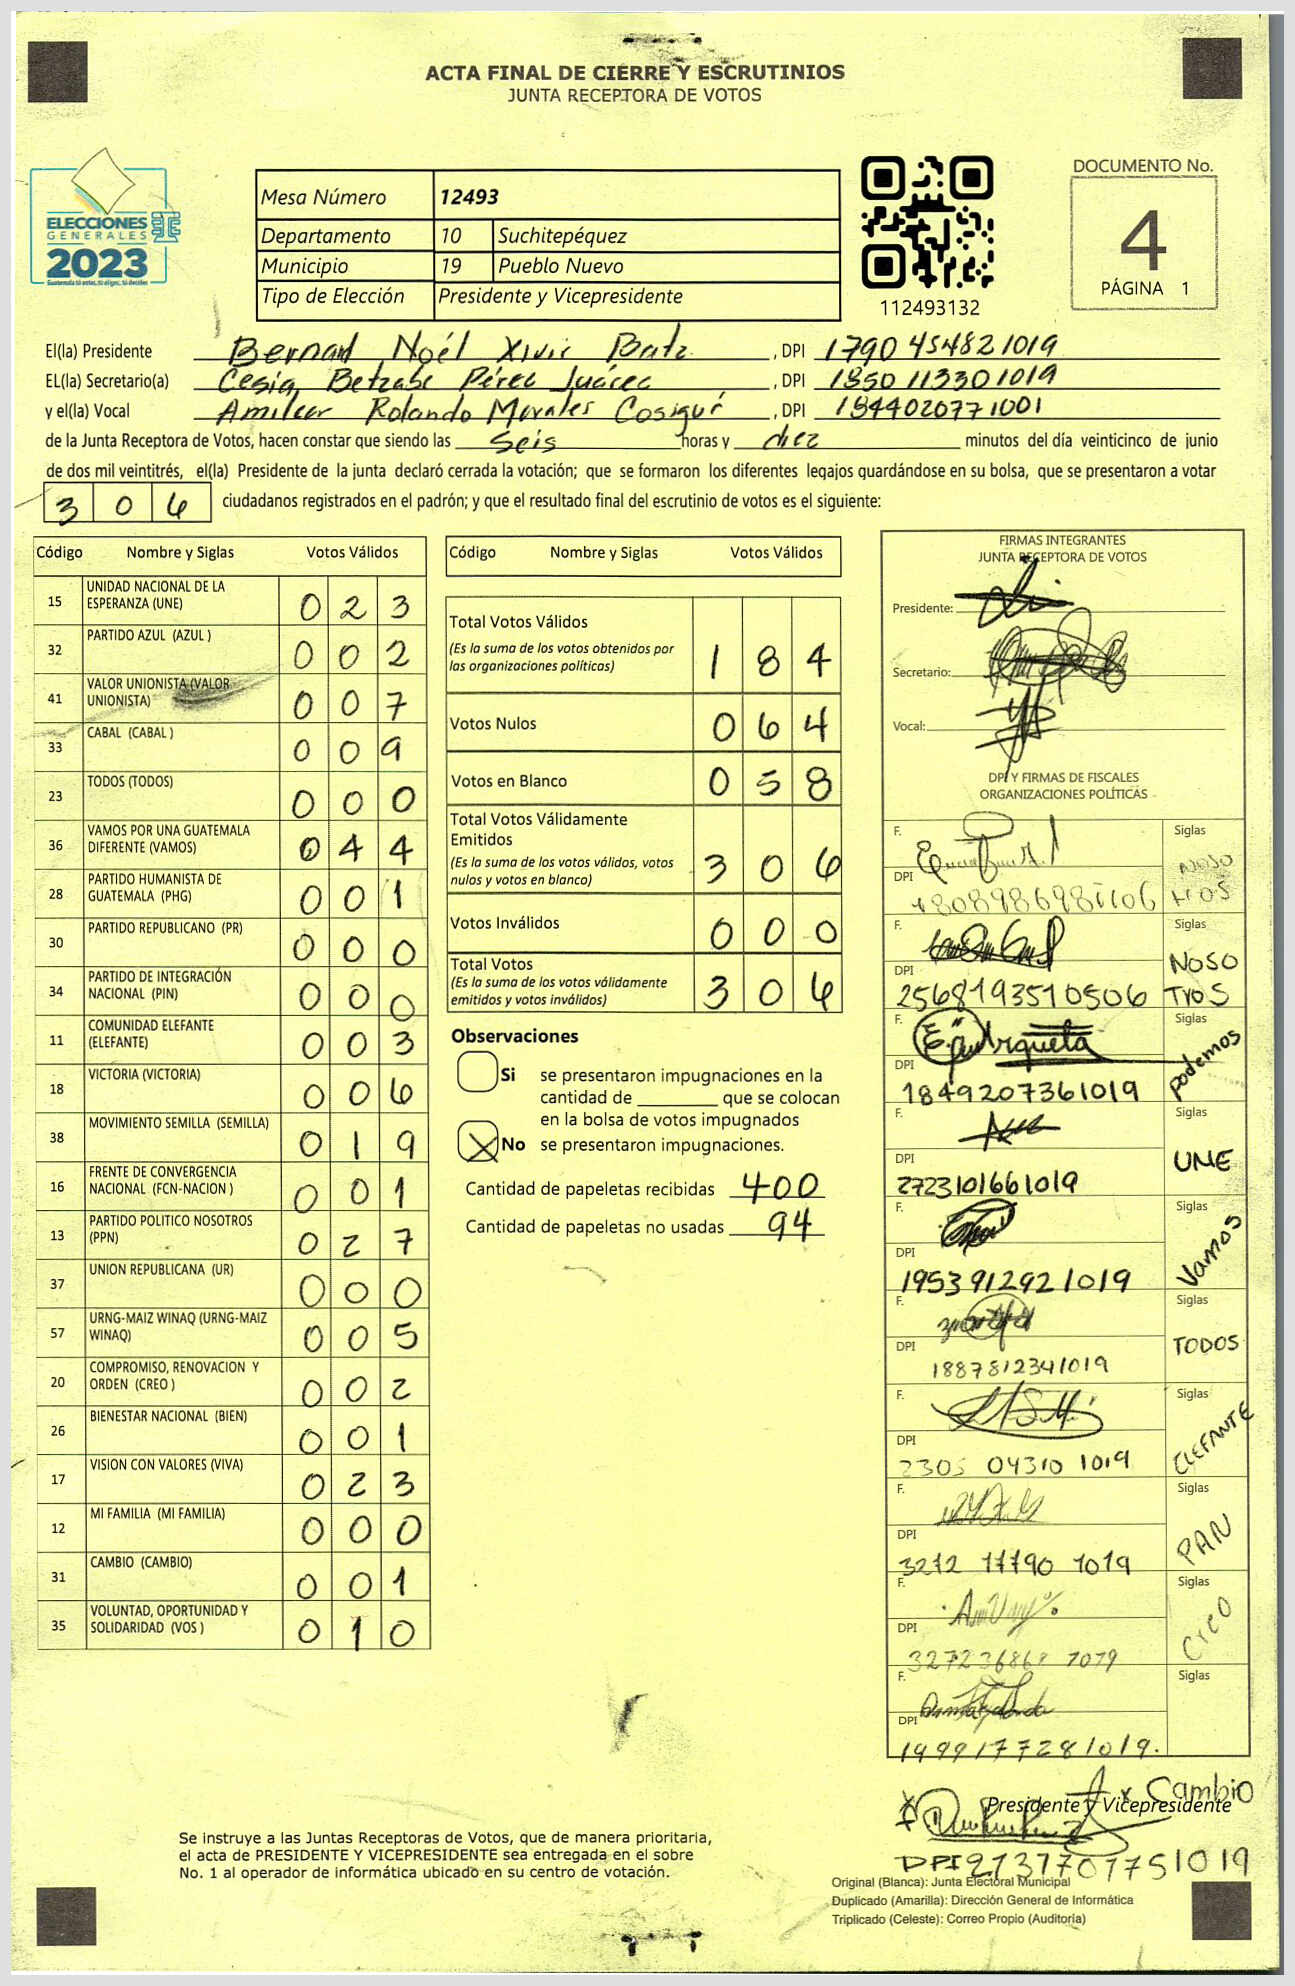 ACTA FINAL DE CIERRE Y ESCRUTINIOS
JUNTA RECEPTORA DE VOTOS
ELECCIONES
GENERALES
2023
Mesa Número 12493
Departamento 10 Suchitepéquez
Municipio 19 Pueblo Nuevo
Tipo de Elección Presidente y Vicepresidente
112493132
DOCUMENTO No.
4
PÁGINA 1
El(la) Presidente Bernard Noél Xivir Batz , DPI 1790 45482 1019
EL(la) Secretario(a) Cesia Betzabe Pérez Juárez , DPI 1850 11330 1019
y el(la) Vocal Amilcar Rolando Morales Cosiguá , DPI 1844020771001
de la Junta Receptora de Votos, hacen constar que siendo las seis horas y diez minutos del día veinticinco de junio
de dos mil veintitrés, el(la) Presidente de la junta declaró cerrada la votación; que se formaron los diferentes legajos guardándose en su bolsa, que se presentaron a votar
306 ciudadanos registrados en el padrón; y que el resultado final del escrutinio de votos es el siguiente:
Código Nombre y Siglas Votos Válidos
15 UNIDAD NACIONAL DE LA ESPERANZA (UNE) 0 2 3
32 PARTIDO AZUL (AZUL ) 0 0 2
41 VALOR UNIONISTA (VALOR UNIONISTA) 0 0 7
33 CABAL (CABAL ) 0 0 9
23 TODOS (TODOS) 0 0 0
36 VAMOS POR UNA GUATEMALA DIFERENTE (VAMOS) 0 4 4
28 PARTIDO HUMANISTA DE GUATEMALA (PHG) 0 0 1
30 PARTIDO REPUBLICANO (PR) 0 0 0
34 PARTIDO DE INTEGRACIÓN NACIONAL (PIN) 0 0 0
11 COMUNIDAD ELEFANTE (ELEFANTE) 0 0 3
18 VICTORIA (VICTORIA) 0 0 6
38 MOVIMIENTO SEMILLA (SEMILLA) 0 1 9
16 FRENTE DE CONVERGENCIA NACIONAL (FCN-NACION ) 0 0 1
13 PARTIDO POLITICO NOSOTROS (PPN) 0 2 7
37 UNION REPUBLICANA (UR) 0 0 0
57 URNG-MAIZ WINAQ (URNG-MAIZ WINAQ) 0 0 5
20 COMPROMISO, RENOVACION Y ORDEN (CREO ) 0 0 2
26 BIENESTAR NACIONAL (BIEN) 0 0 1
17 VISION CON VALORES (VIVA) 0 2 3
12 MI FAMILIA (MI FAMILIA) 0 0 0
31 CAMBIO (CAMBIO) 0 0 1
35 VOLUNTAD, OPORTUNIDAD Y SOLIDARIDAD (VOS ) 0 1 0
Código Nombre y Siglas Votos Válidos
Total Votos Válidos 1 8 4
(Es la suma de los votos obtenidos por
las organizaciones políticas)
Votos Nulos 0 6 4
Votos en Blanco 0 5 8
Total Votos Válidamente
Emitidos
(Es la suma de los votos válidos, votos
nulos y votos en blanco) 3 0 6
Votos Inválidos 0 0 0
Total Votos
(Es la suma de los votos válidamente
emitidos y votos inválidos) 3 0 6
Observaciones
Si se presentaron impugnaciones en la
cantidad de ________ que se colocan
en la bolsa de votos impugnados
No se presentaron impugnaciones.
Cantidad de papeletas recibidas 400
Cantidad de papeletas no usadas 94
FIRMAS INTEGRANTES
JUNTA RECEPTORA DE VOTOS
Presidente:
Secretario:
Vocal:
DPI Y FIRMAS DE FISCALES
ORGANIZACIONES POLÍTICAS
F. Siglas
DPI NOSOTROS
F. Siglas
DPI 2568193510506 NOSOTROS
F. Siglas
DPI 1849207361019 Podemos
F. Siglas
DPI 2723101661019 UNE
F. Siglas
DPI 1953912921019 Vamos
F. Siglas
DPI 1887812341019 TODOS
F. Siglas
DPI 2305 04310 1019 ELEFANTE
F. Siglas
DPI 3212 17790 1019 PAN
F. Siglas
DPI Creo
F. Siglas
DPI 1999177281019.
Cambio
Presidente y Vicepresidente
DPI 2137701751019
Se instruye a las Juntas Receptoras de Votos, que de manera prioritaria,
el acta de PRESIDENTE Y VICEPRESIDENTE sea entregada en el sobre
No. 1 al operador de informática ubicado en su centro de votación.
Original (Blanca): Junta Electoral Municipal
Duplicado (Amarilla): Dirección General de Informática
Triplicado (Celeste): Correo Propio (Auditoría)